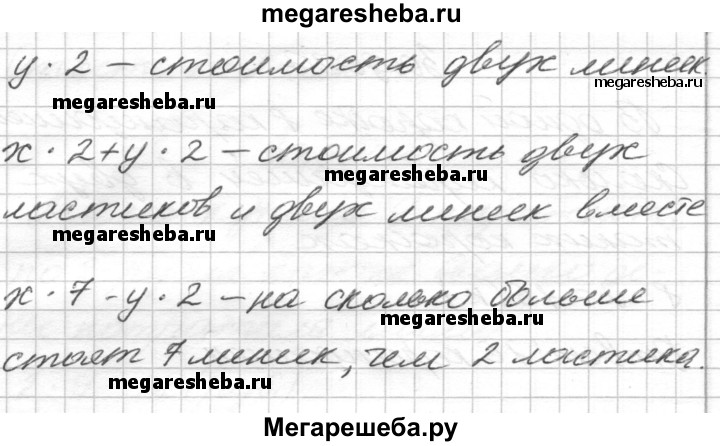 megaresheba.ru
y · 2 – стоимость двух линеек.
megaresheba.ru
megaresheba.ru
x · 2 + y · 2 – стоимость двух
megaresheba.ru
ластиков и двух линеек вместе
megaresheba.ru
x · 7 - y · 2 – на сколько больше
megaresheba.ru
стоят 7 линеек, чем 2 ластика.
megaresheba.ru
Мегарешеба.ру